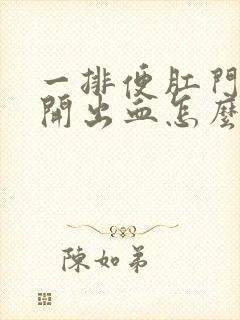 一排便肛門
開出血怎麼
陳如弟